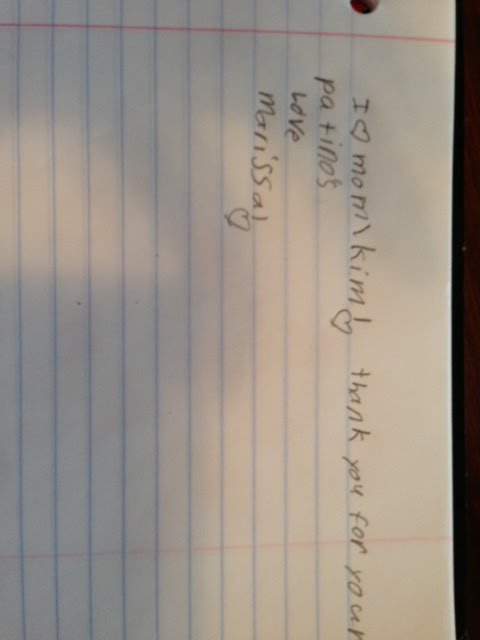 I ♡ mom\kim! ♡ thank you for your
patinos
Love
Marissa! ♡